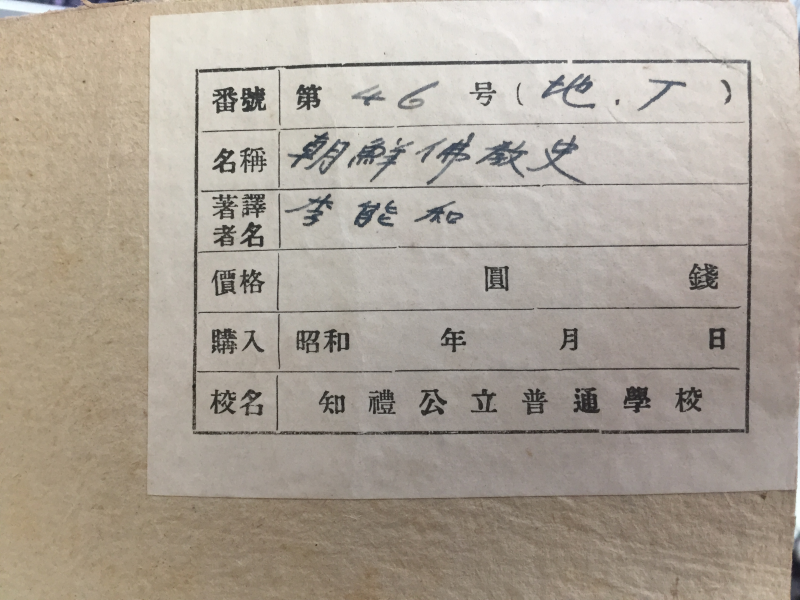 番號 第 46 号 ( 地 . 丁 )
名稱 朝鮮佛教史
著譯者名 李能和
價格 圓 錢
購入 昭和 年 月 日
校名 知禮公立普通學校